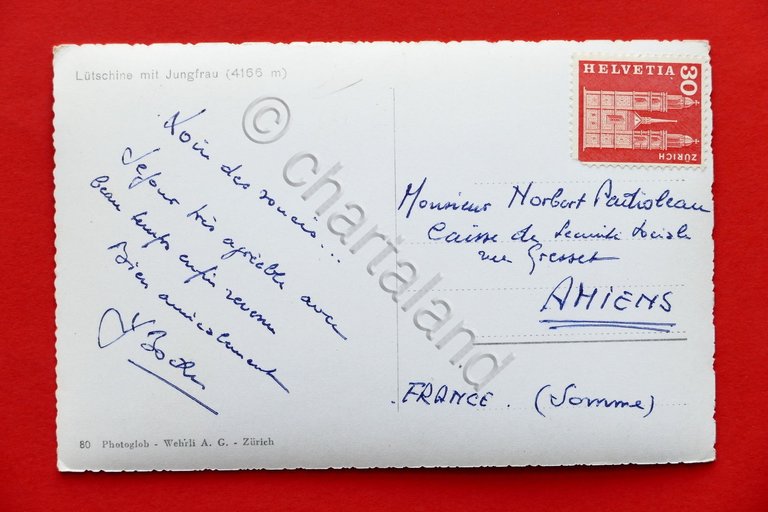 Lütschine mit Jungfrau (4166 m)
Loin des soucis...
Séjour très agréable avec
beau temps enfin revenu
Bien amicalement
80 Photoglob - Wehrli A. G. - Zürich
HELVETIA
30
ZÜRICH
Monsieur Norbert
Caisse de Sécurité Sociale
rue Gresset
AMIENS
FRANCE. (Somme)
© chartaland